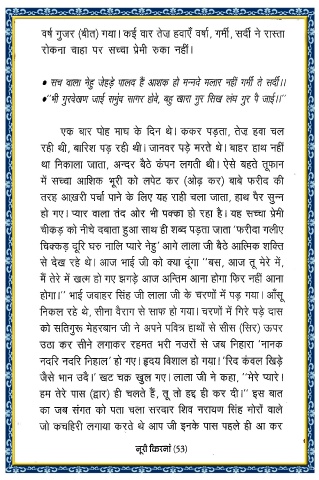 वर्ष गुजर (बीत) गया। कई बार तेज़ हवाएँ वर्षा, गर्मी, सर्दी ने रास्ता
रोकना चाहा पर सच्चा प्रेमी रुका नहीं।
• सच वाला नेहु जेहड़े पालद हैं आशक हो मन्नवे मलार नहीं गर्मी ते सर्दी।।
• "भी गुरवेखण जाई समुंव सागर होवे, बहु खारा गुर सिख लंघ गुर पै जाई।।"
एक बार पोह माघ के दिन थे। ककर पड़ता, तेज़ हवा चल
रही थी, बारिश पड़ रही थी। जानवर पड़े मरते थे। बाहर हाथ नहीं
था निकाला जाता, अन्दर बैठे कंपन लगती थी। ऐसे बहते तुफान
में सच्चा आशिक भूरी को लपेट कर (ओढ़ कर) बाबे फरीद की
तरह आख़री पर्चा पाने के लिए यह राही चला जाता, हाथ पैर सुन्न
हो गए। प्यार वाला तंद और भी पक्का हो रहा है। यह सच्चा प्रेमी
चीकड़ को नीचे दबाता हुआ साथ ही शब्द पड़ता जाता 'फरीदा गलीए
चिक्कड़ दूरि घरु नालि प्यारे नेहु' आगे लाला जी बैठे आत्मिक शक्ति
से देख रहे थे। आज भाई जी को क्या दूंगा "बस, आज तू मेरे में,
मैं तेरे में खत्म हो गए झगड़े आज अन्तिम आना होगा फिर नहीं आना
होगा।" भाई जवाहर सिंह जी लाला जी के चरणों में पड़ गया। आँसू
निकल रहे थे, सीना वैराग से साफ हो गया। चरणों में गिरे पड़े दास
को सतिगुरू मेहरबान जी ने अपने पवित्र हाथों से सीस (सिर) ऊपर
उठा कर सीने लगाकर रहमत भरी नजरों से जब निहारा 'नानक
नदरि नदरि निहाल' हो गए। हृदय विशाल हो गया। 'रिद कंवल खिड़े
जैसे भान उदै।' खट चक्र खुल गए। लाला जी ने कहा, "मेरे प्यारे।
हम तेरे पास (द्वार) ही चलते हैं, तू तो हद्द ही कर दी।" इस बात
का जब संगत को पता चला सरदार शिव नरायण सिंह मोरों वाले
जो कचहिरी लगाया करते थे आप जी इनके पास पहले ही आ कर
नूरी किरनां (53)